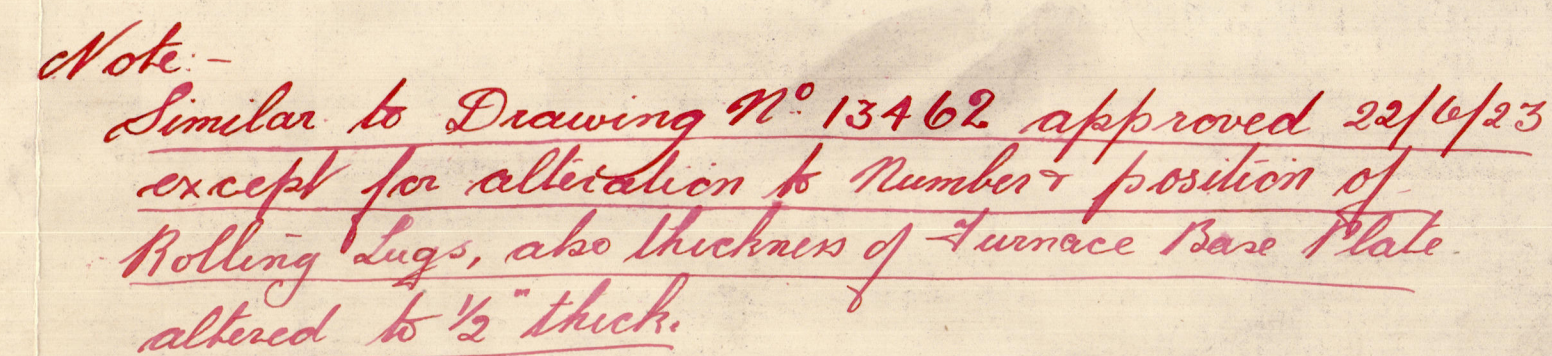 Note:-
Similar to Drawing Nº 13462 approved 22/6/23
except for alteration to Number & position of
Rolling Lugs, also thickness of Furnace Base Plate.
altered to ½" thick.